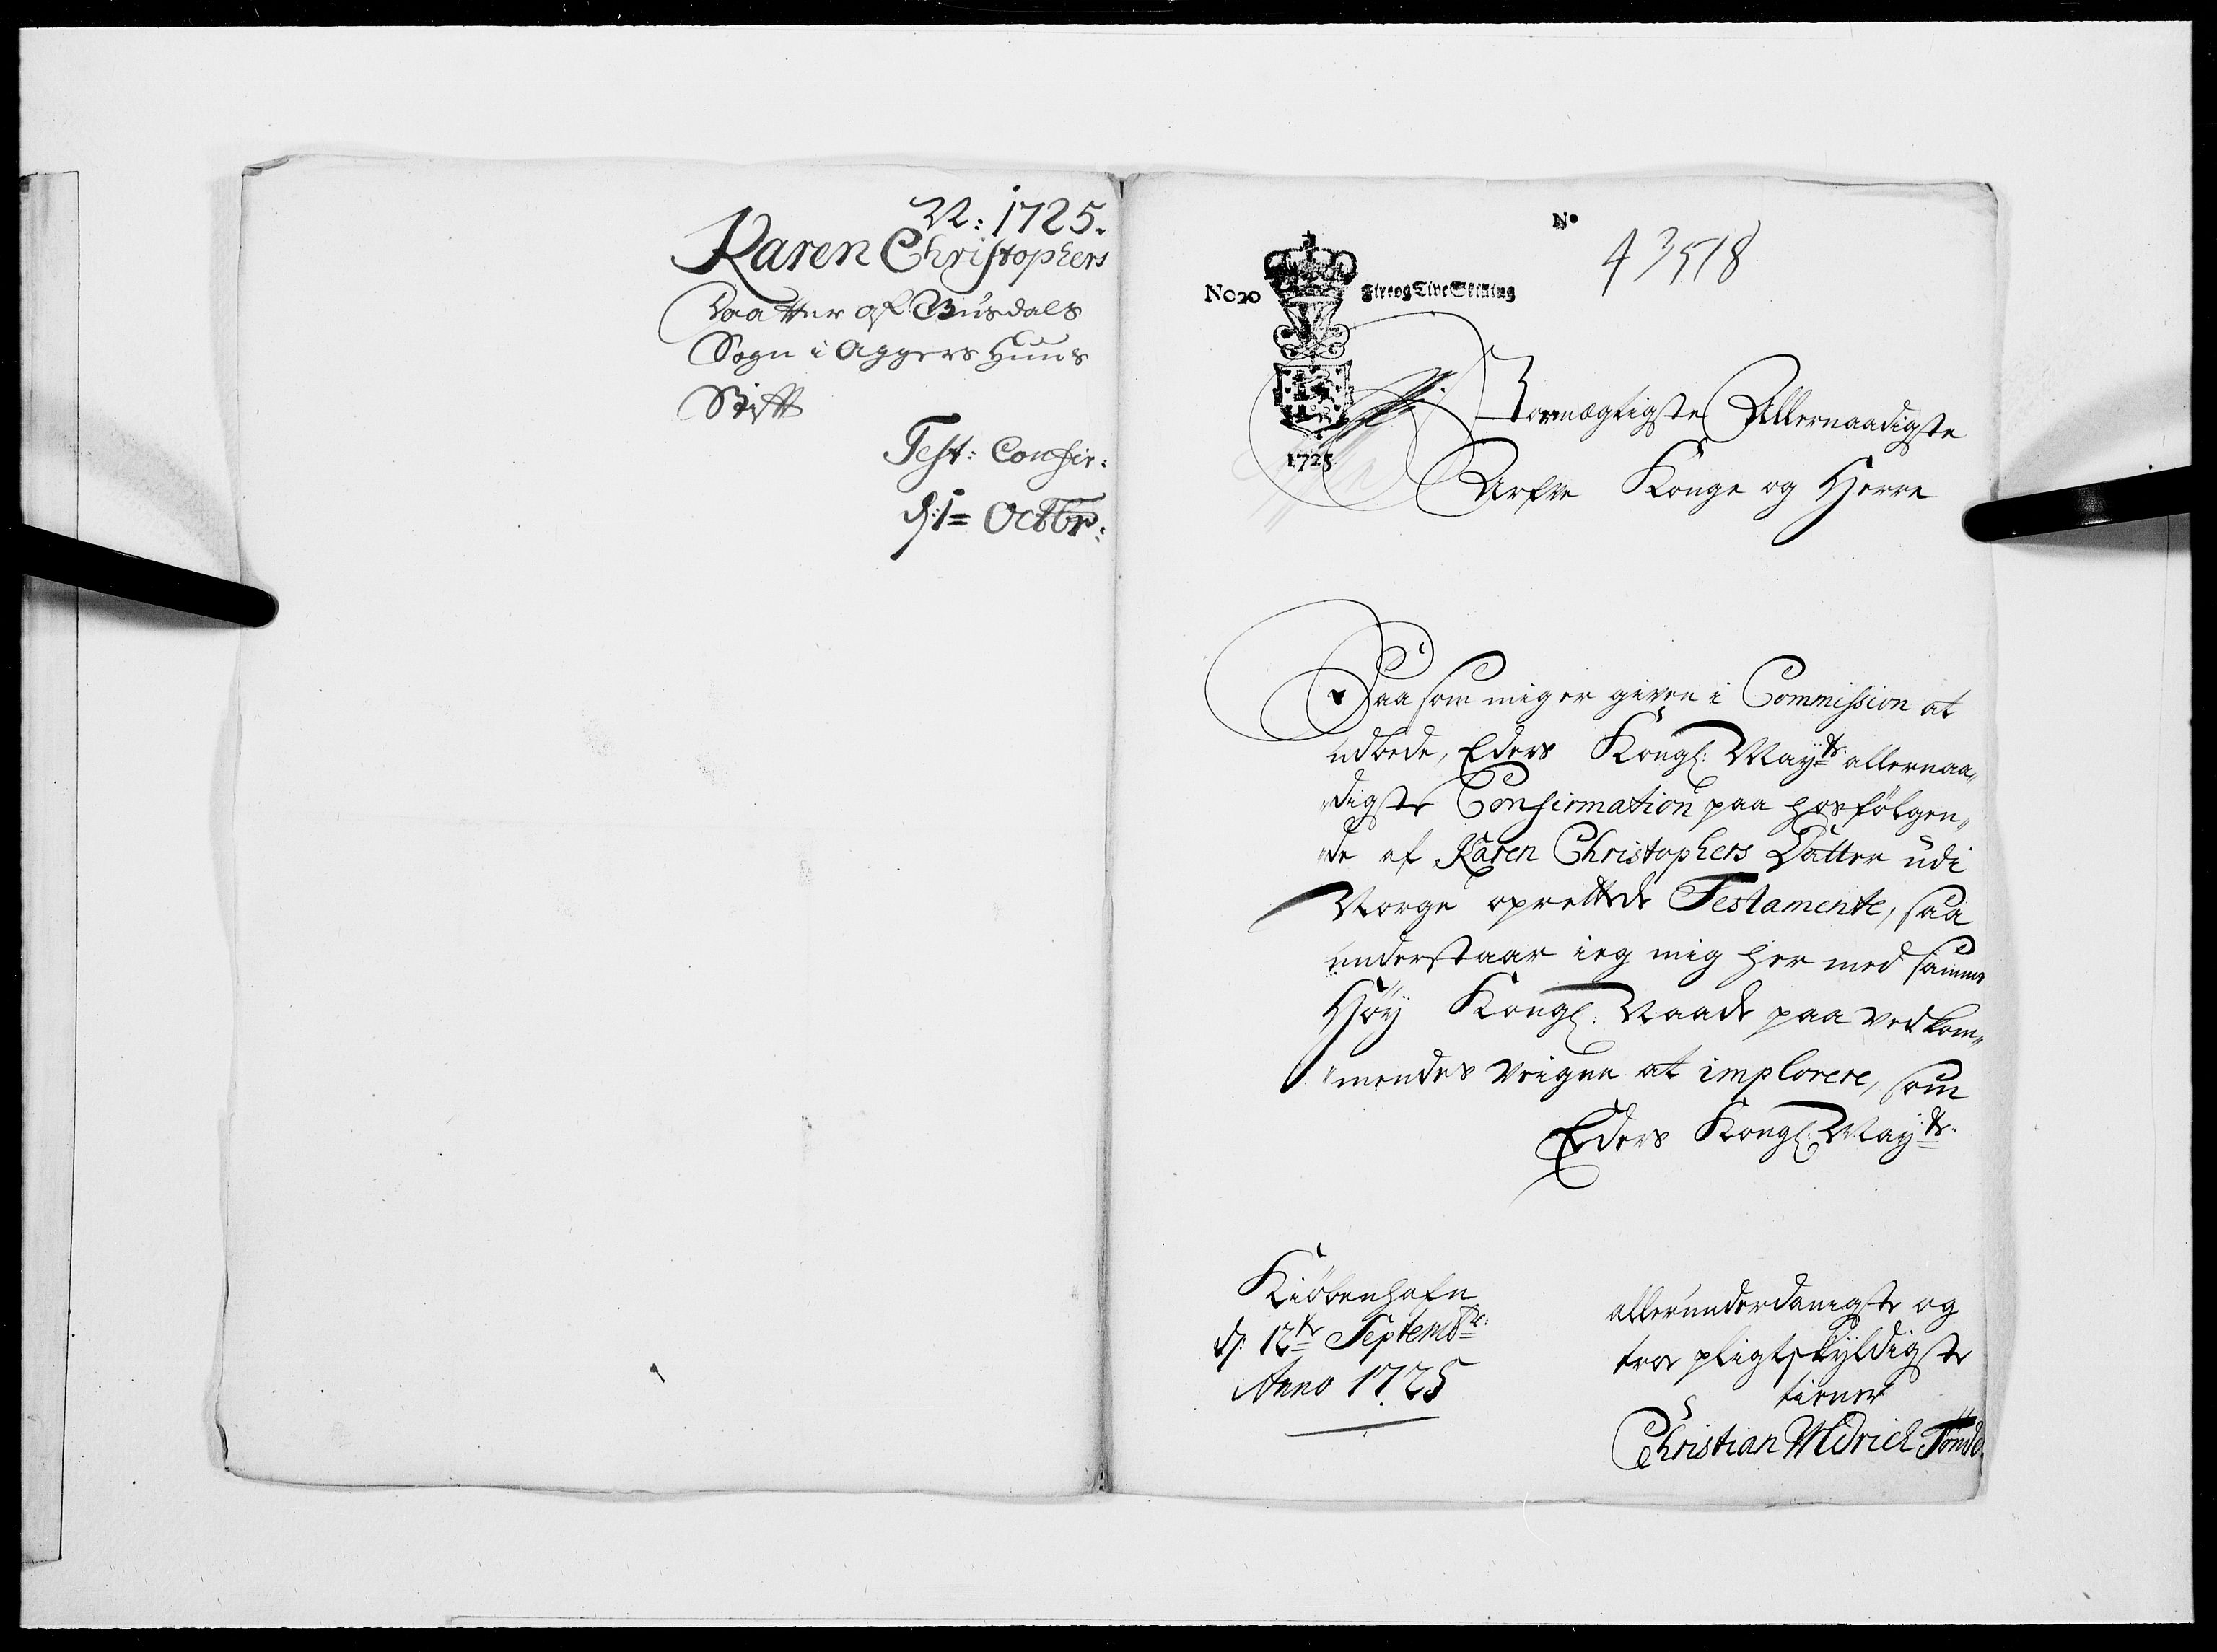 N: 1725.
Karen Christophers
Daatter af Budals
Sogn i Aggershuus
Stift
Test: Confir:
d: 1= Octbr:
No
43518
No 20
Fire og Tive Skilling
1725
Stormægtigste Allernaadigste
Arfve Konge og Herre
Saasom mig er given i Commission at
udbede, Eders Kongl: May:ts allernaa„
„digste Confirmation paa hosfölgen„
„de af Karen Christophers Datter udi
Norge oprettede Testamente, saa
understaar ieg mig her med samme
Höy Kongl: Naade paa vedkom„
„mendes veigne at implorere, som
Eders Kongl: May:ts
Kiöbenhafn
d: 12te Septembr:
Anno 1725
allerunderdanigste og
troe pligtskyldigste
tiener
Christian